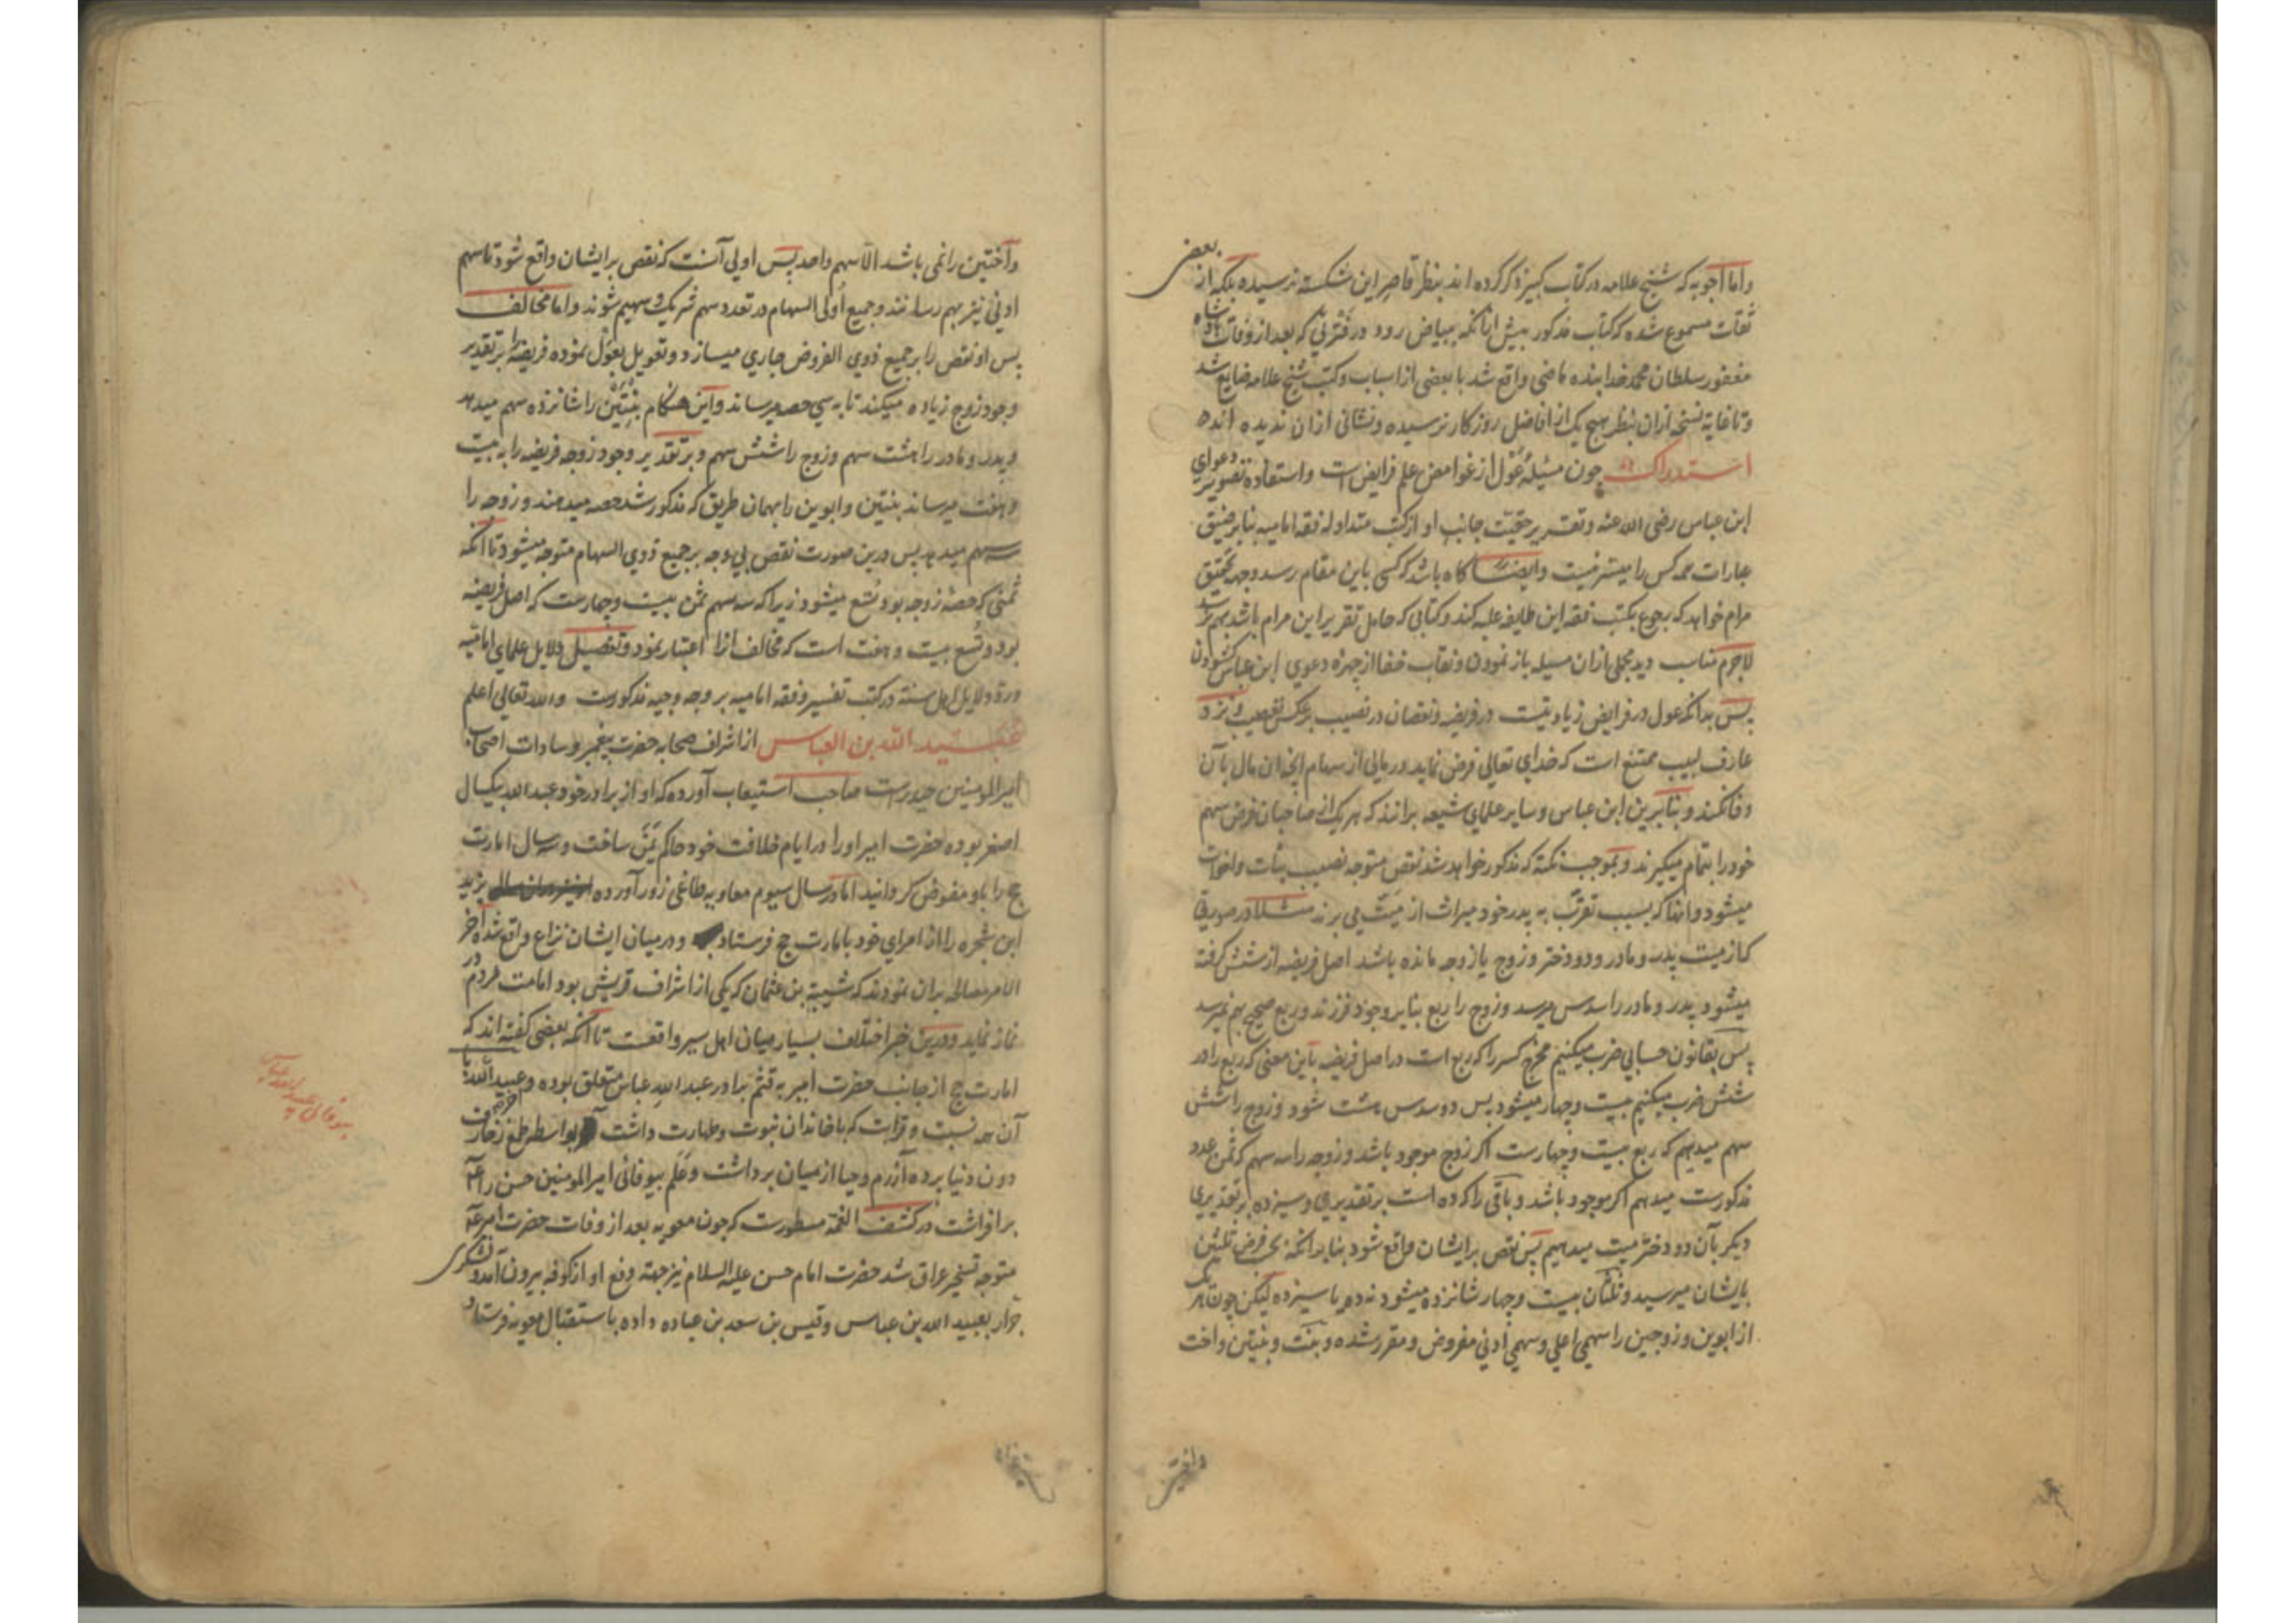 واما اجوبه که شیخ علامه در کتاب کبیر ذکر کرده اند بنظر قاصر این شکسته نرسیده بلکه از بعض
ثقات مسموع شده که کتاب مذکور پیش ازانکه ببیاض رود در فترتی که بعد از وفات شاه
مغفور سلطان محمد خدابنده ماضی واقع شد با بعضی از اسباب و کتب شیخ علامه ضایع شد
و تا غایة نسخه ازان بنظر هیچ یک از افاضل روزکار نرسیده و نشانی ازان ندیده اند
استدراک چون مسئله عَوْل از غوامض علم فرایض است و استفاده تصویر دعوای
ابن عباس رضی الله عنه و تقریر حقیّت جانب او از کتب متداوله فقه امامیه بنا بر ضیق
عبارات همه کس را میسّر نیست و ایضا کاه باشد که کسی باین مقام رسد و جهة تحقیق
مرام خواهد که رجوع بکتب فقه این طایفه علیه کند و کتابی که حامل تقریر این مرام باشد بهم نرسد
لاجرم مناسب دید مجملی ازان مسیله باز نمودن و نقاب خفا از چهره دعوی ابن عباس کشودن
پس بدانکه عول در فرایض زیادتیست در فریضه و نقصان در نصیب بر عکس تعصیب و نزد
عارف لبیب ممتنع است که خدای تعالی فرض نماید در مالی از سهام انچه ان مال بآن
وفا نکند و بنابرین ابن عباس و سایر علمای شیعه برانند که هر یک از صاحبان فرض سهم
خود را بتمام میکیرند و بموجب نکته که مذکور خواهد شد نقص متوجه نصیب بنات و اخوات
میشود و انها که بسبب تقرّب به پدر خود میراث از میّت می برند مثلا در صورتی
که از میت پدر و مادر و دو دختر و زوج یا زوجه مانده باشد اصل فریضه از شش کرفته
میشود پدر و مادر را سدس میرسد و زوج را ربع بنا بر وجود فرزند و ربع صحیح بهم نمیرسد
پس بقانون حسابی ضرب میکنیم مخرج کسر را که ربع است در اصل فریضه باین معنی که ربع را در
شش ضرب میکنیم بیست و چهار میشود پس دو سدس هشت شود و زوج را شش
سهم میدهیم که ربع بیست و چهارست اکر زوج موجود باشد و زوجه را سه سهم که ثُمن عدد
مذکورست میدهیم اکر موجود باشد و باقی را که ده است بر تقدیری و سیزده بر تقدیری
دیکر بآن دو دختر میت میدهیم پس نقص برایشان واقع شود بنابرانکه بحسب فرض ثلثین
بایشان میرسید و ثلثان بیست و چهار شانزده میشود نه ده یا سیزده لیکن چون هر یک
از ابوین و زوجین را سهمی اعلی و سهمی ادنی مفروض و مقرر شده و بنت و بنتین و اخت
واختین
واختین را نمی باشد الا سهم واحد پس اولی آنست که نقص برایشان واقع شود تا سهم
ادنی نیز بهم رسانند و جمیع اُولی السهام در تعدد سهم شریک و سهیم شوند و اما مخالف
پس او نقص را بر جمیع ذوی الفروض جاری میسازد و تعویل بعَوْل نموده فریضه را بر تقدیر
وجود زوج زیاده میکند تا به سی حصه میرساند و این هنکام بنتین را شانزده سهم میدهد
و پدر و مادر را هشت سهم و زوج را شش سهم و بر تقدیر وجود زوجه فریضه را به بیست
و هفت میرساند بنتین و ابوین را بهمان طریق که مذکور شد حصه میدهند و زوجه را
سه سهم میدهد پس درین صورت نقص بی وجه بر جمیع ذوی السهام متوجه میشود تا آنکه
ثمنی که حصۀ زوجه بود تُسع میشود زیرا که سه سهم ثمن بیست و چهارست که اصل فریضه
بود و تُسع بیست و هفت است که مخالف انرا اعتبار نمود و تفصیل دلایل علمای امامیّه
و ردّ دلایل اهل سنة در کتب تفسیر و فقه امامیه بر وجه وجیه مذکورست والله تعالی اعلم
عبید الله بن العباس از اشراف صحابه حضرت پیغمبر و سادات اصحاب
امیرالمومنین حیدرست صاحب استیعاب آورده که او از برادر خود عبدالله بیکسال
اصغر بوده حضرت امیر او را در ایام خلافت خود حاکم یَمَن ساخت و سه سال امارت
حج را باو مفوض کردانید اما در سال سیوم معاویه طاغی زور آورده یزید
ابن شجره را از امرای خود بامارت حج فرستاد و در میان ایشان نزاع واقع شد آخر
الامر مصالحه بران نمودند که شیبة بن عثمان که یکی از اشراف قریش بود امامت مردم در
نماز نماید و درین خبر اختلاف بسیار میان اهل سیر واقعست تا آنکه بعضی کفته اند که
امارت حج از جانب حضرت امیر به قثم برادر عبد الله عباس متعلق بوده و عبیدالله با
آن همه نسبت و قرابت که با خاندان نبوت و طهارت داشت بواسطه طمع زخارف
دون دنیا پرده آزرم و حیا از میان برداشت و عَلَم بیوفائی امیرالمومنین حسن را
برافراشت در کشف الغمة مسطورست که چون معویه بعد از وفات حضرت امیر
متوجه تسخیر عراق شد حضرت امام حسن علیه السلام نیز جهة دفع او از کوفه بیرون آمد و لشکری
جرار بعبید الله بن عباس و قیس بن سعد بن عباده داده باستقبال معویه فرستاد
بیوفائی عبیدالله عباس